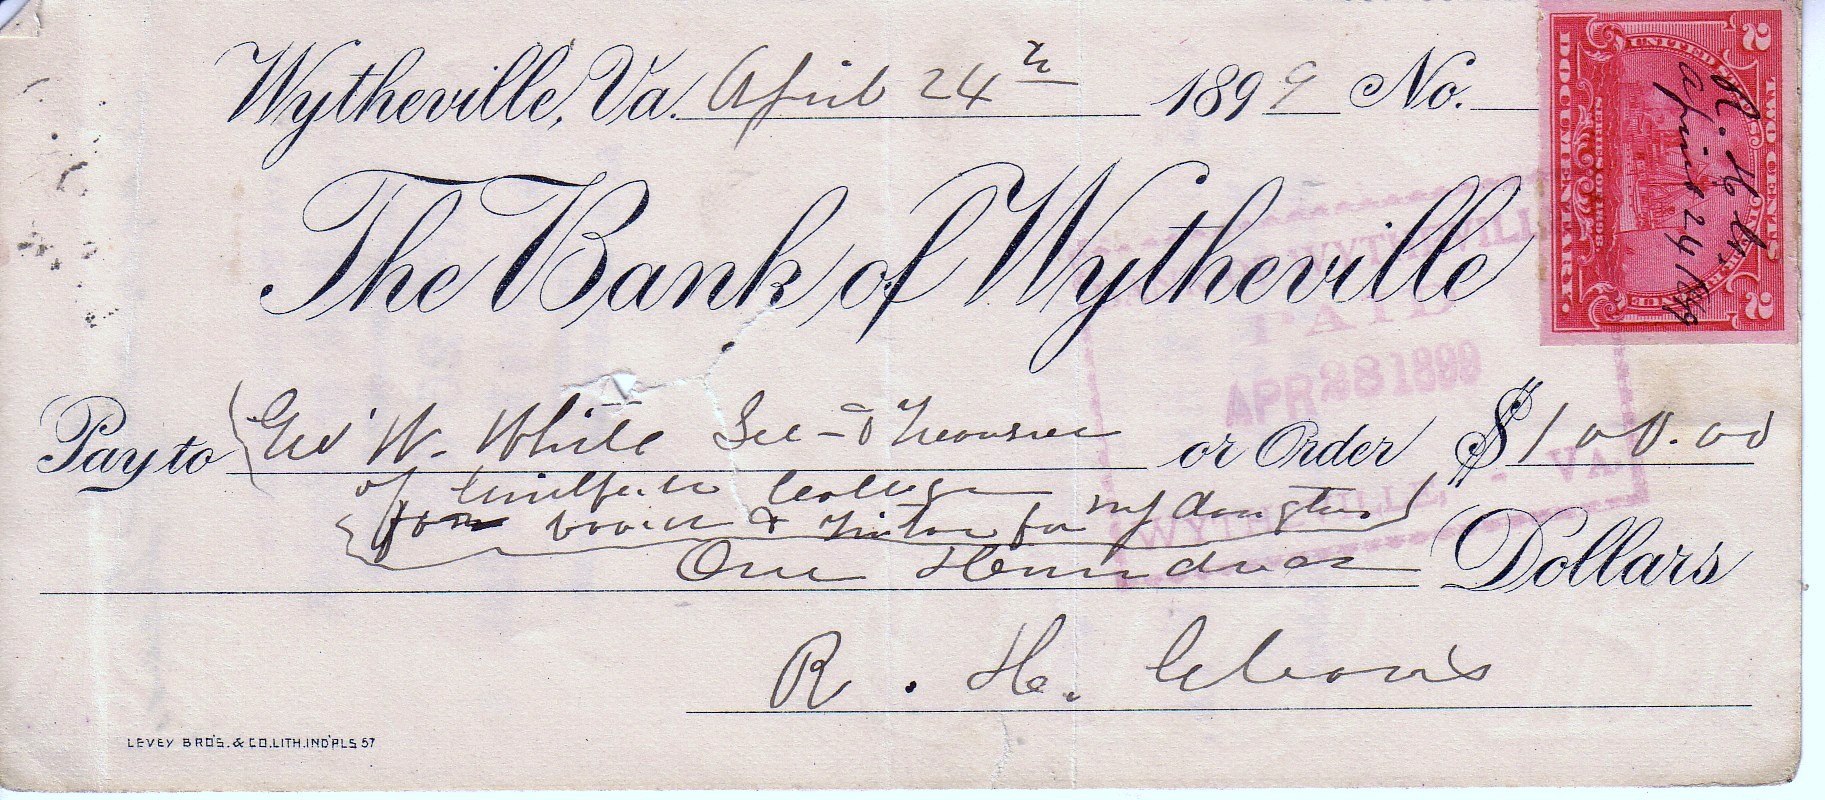 Wytheville, Va. April 24th 1899 No.
The Bank of Wytheville
Pay to Geo W. White Sec - & Treasurer or Order $100.00
of Guilford College
for board & tuition for my daughter
One Hundred Dollars
R. H.
LEVEY BRO'S. & CO. LITH. IND'PLS 57
TWO CENTS
UNITED STATES INTERNAL REVENUE
SERIES OF 1898
DOCUMENTARY
2 2
R. H.
April 24 1899
WYTHEVILLE
PAID
APR 28 1899
WYTHEVILLE, - VA.